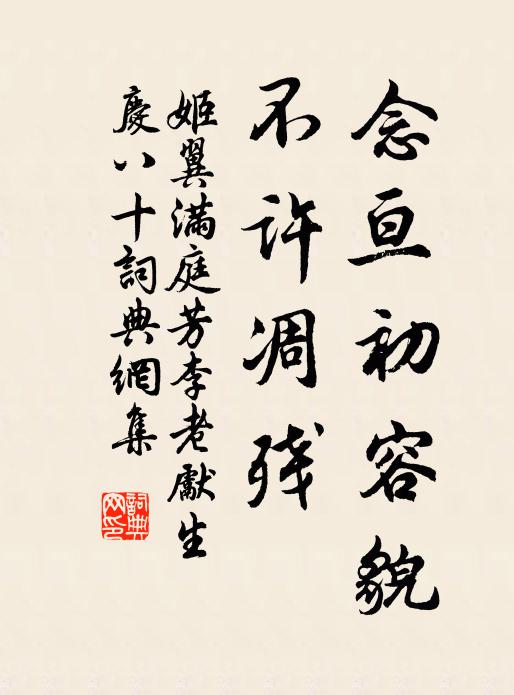 念亘初容貌
不许凋残
姬翼满庭芳李老獻生
慶八十詞典網集
詞典網印